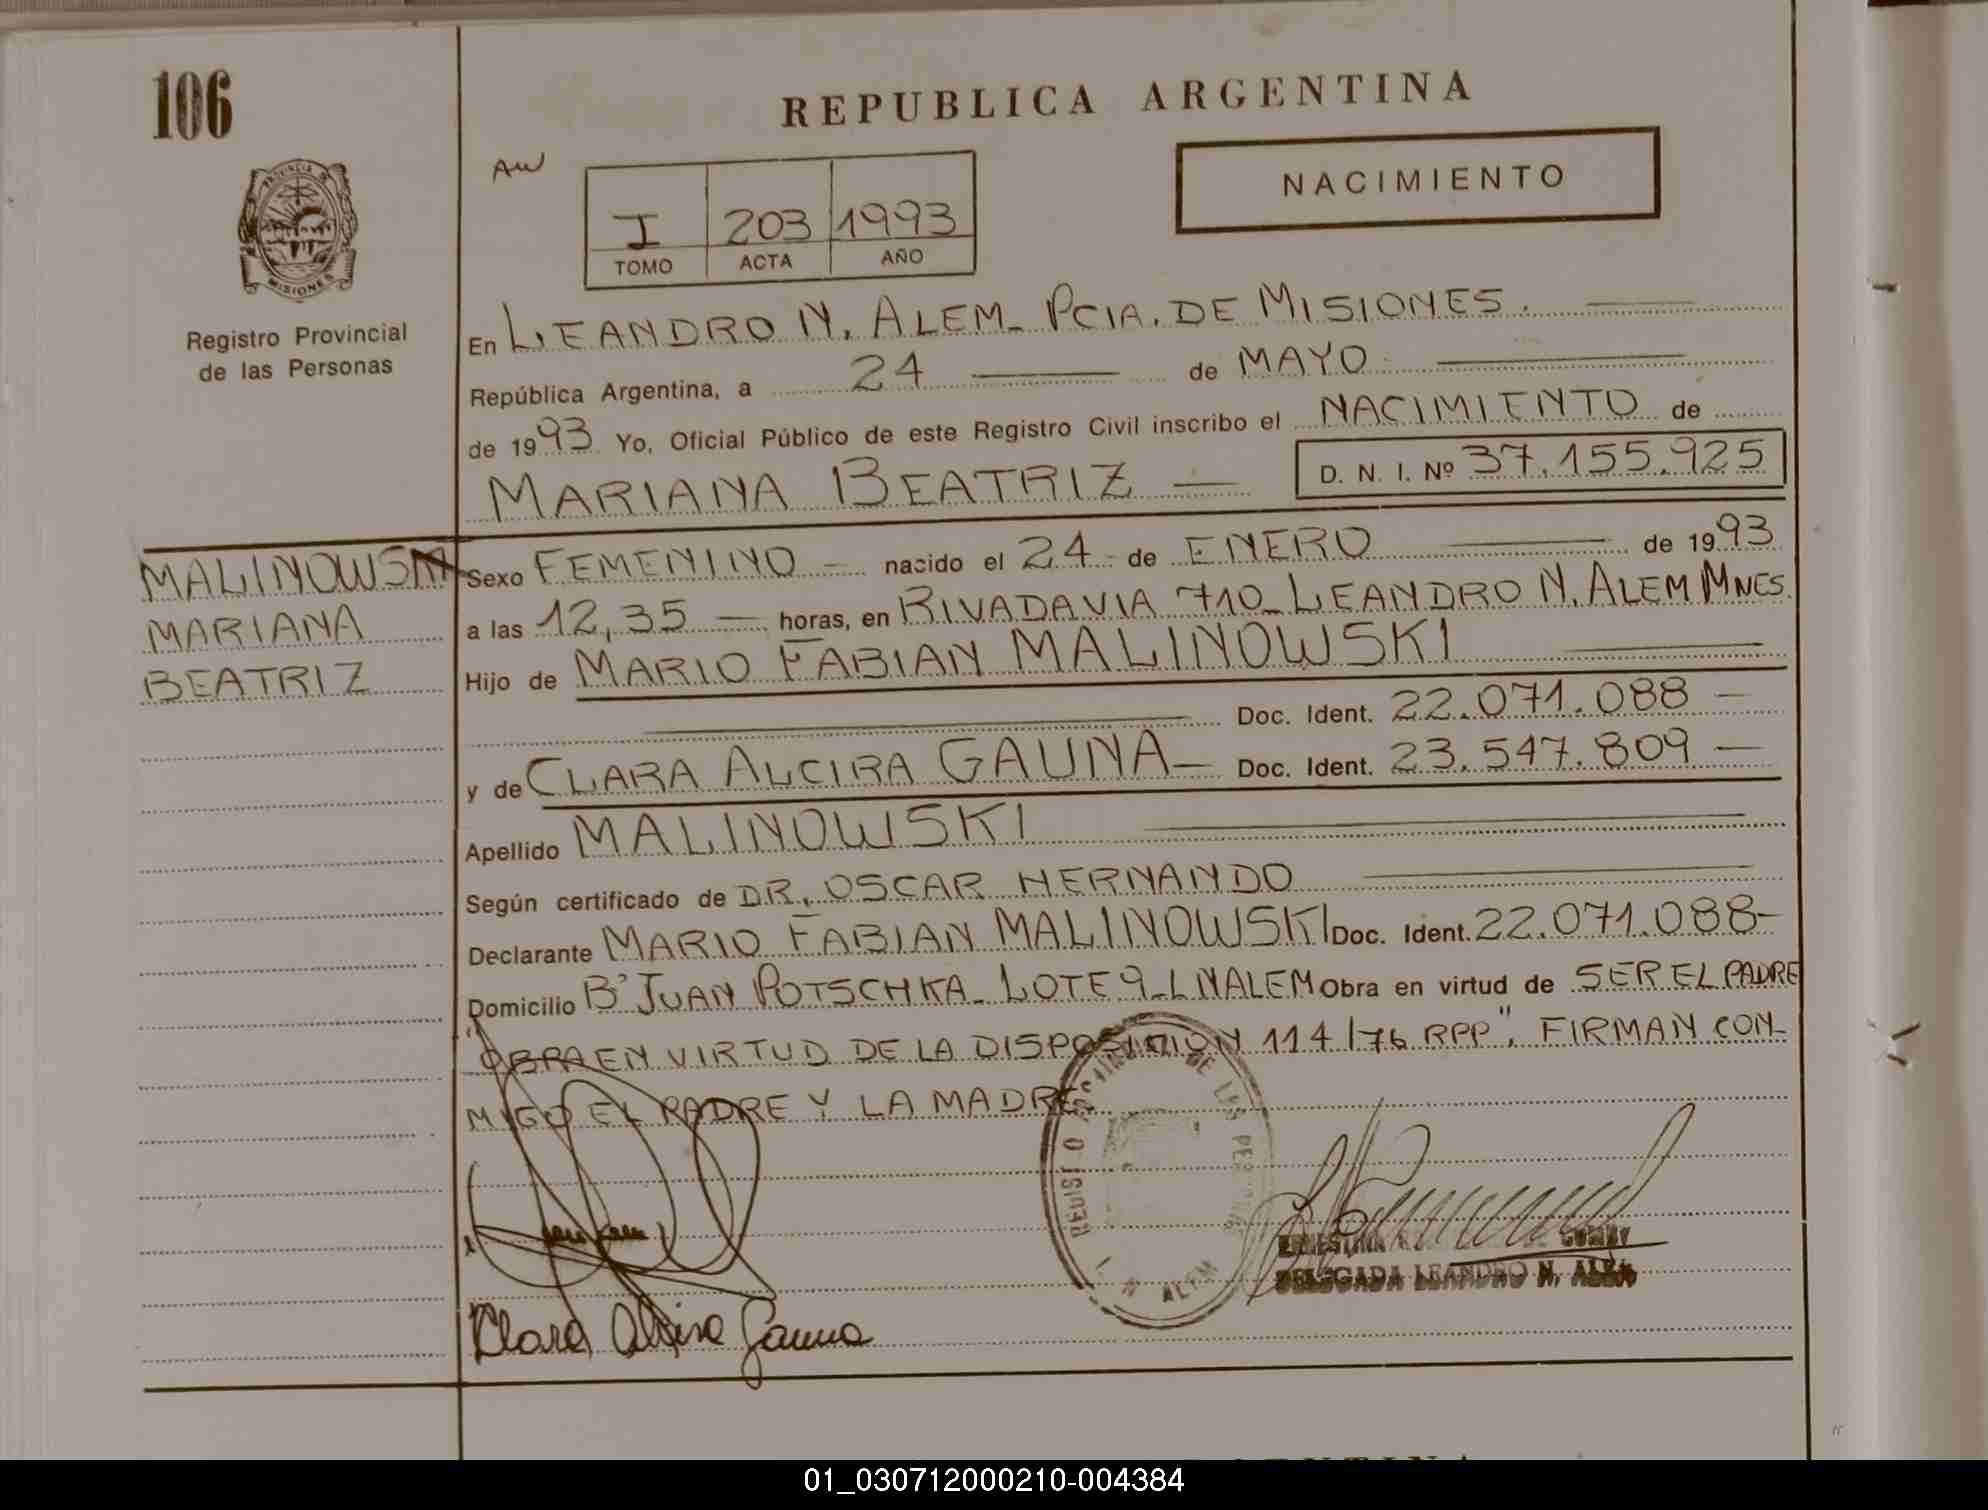 106
REPUBLICA ARGENTINA
NACIMIENTO
I 203 1993
TOMO ACTA AÑO
PROVINCIA DE
MISIONES
Registro Provincial
de las Personas
En LEANDRO N. ALEM_ PCIA. DE MISIONES.
República Argentina, a 24 de MAYO
de 1993 Yo, Oficial Público de este Registro Civil inscribo el NACIMIENTO de
MARIANA BEATRIZ — D. N. I. Nº 37.155.925
MALINOWSKI
MARIANA
BEATRIZ
Sexo FEMENINO — nacido el 24 - de ENERO de 1993
a las 12,35 — horas, en RIVADAVIA 710_ LEANDRO N. ALEM MNES.
Hijo de MARIO FABIAN MALINOWSKI
Doc. Ident. 22.071.088 —
y de CLARA ALCIRA GAUNA — Doc. Ident. 23.547.809 —
Apellido MALINOWSKI
Según certificado de DR. OSCAR HERNANDO
Declarante MARIO FABIAN MALINOWSKI Doc. Ident. 22.071.088-
Domicilio B° JUAN POTSCHKA_ LOTE 9_L N ALEM Obra en virtud de SER EL PADRE
"OBRA EN VIRTUD DE LA DISPOSICION 114/76 RPP", FIRMAN CON_
MIGO EL PADRE Y LA MADRE.
L. N. ALEM
DELEGADA LEANDRO N. ALEM
Clara Alcira Gauna
01_030712000210-004384